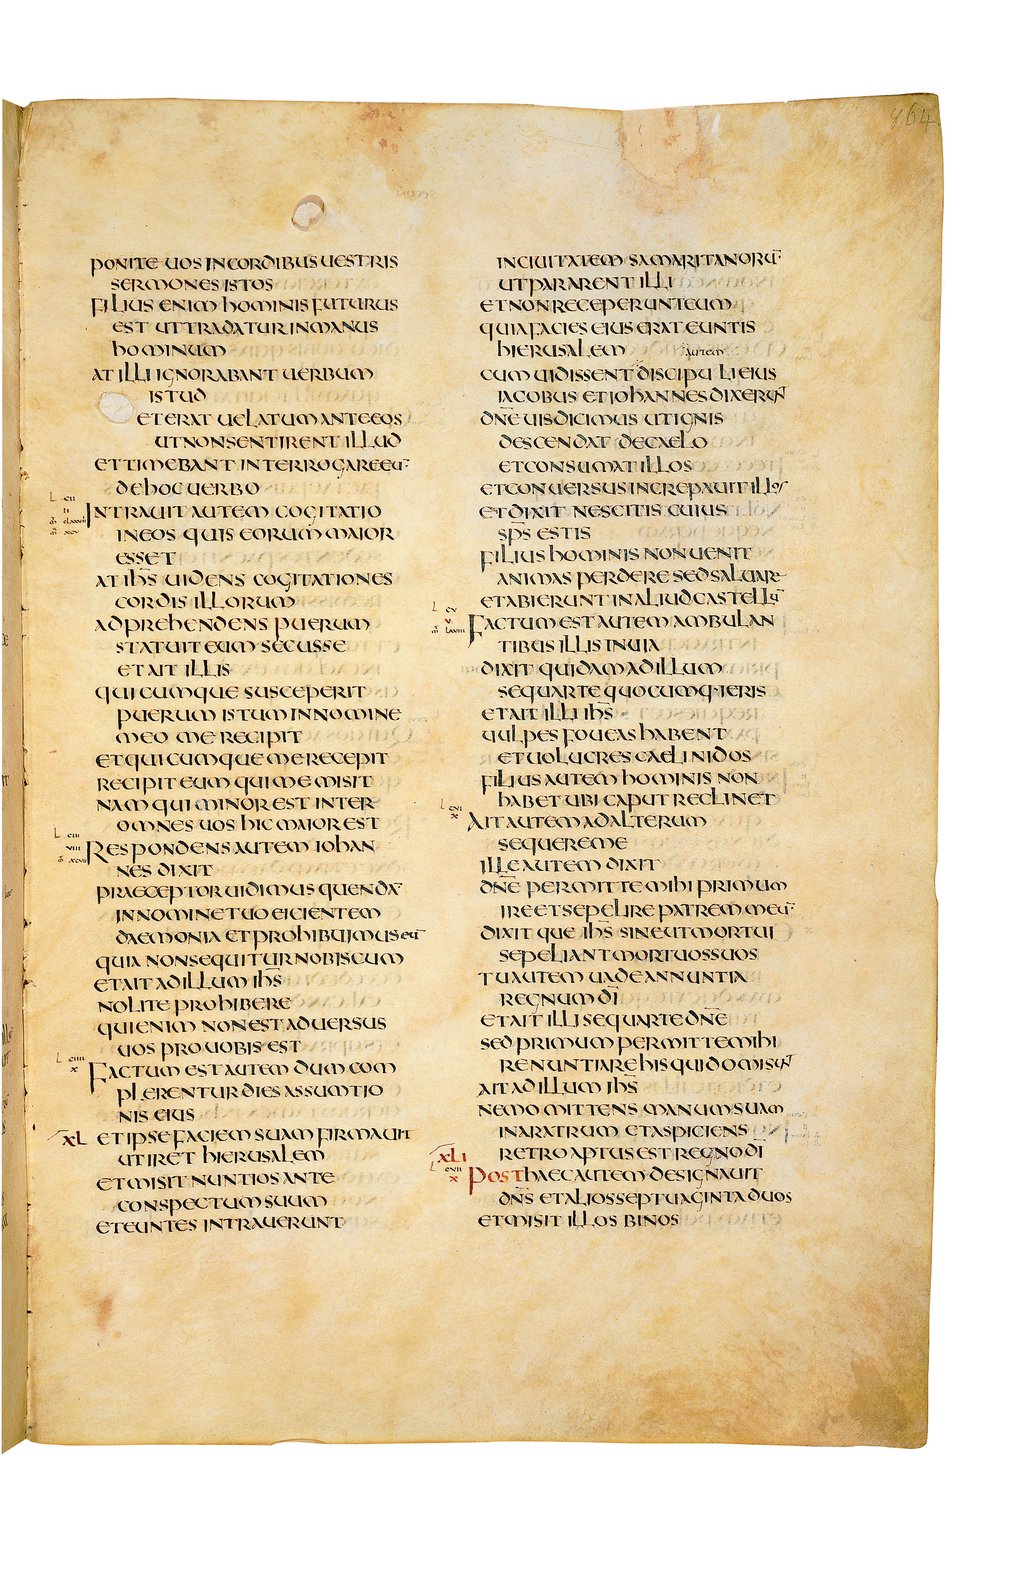 864
PONITE UOS INCORDIBUS UESTRIS
SERMONES ISTOS
FILIUS ENIM HOMINIS FUTURUS
EST UTTRADATUR INMANUS
HOMINUM
AT ILLI IGNORABANT UERBUM
ISTUD
ETERAT UELATUM ANTE EOS
UTNONSENTIRENT ILLUD
ETTIMEBANT INTERROGARE EŪ·
DEHOC UERBO
L CII
II
INTRAUIT AUTEM COGITATIO
INEOS QUIS EORUM MAIOR
ESSET
AT IH̄S UIDENS COGITATIONES
CORDIS ILLORUM
ADPREHENDENS PUERUM
STATUIT EUM SECUSSE
ETAIT ILLIS
QUICUMQUE SUSCEPERIT
PUERUM ISTUM INNOMINE
MEO ME RECIPIT
ETQUICUMQUE ME RECEPIT
RECIPIT EUM QUI ME MISIT
NAM QUI MINOR EST INTER
OMNES UOS HIC MAIOR EST
L CIII
VIII
RESPONDENS AUTEM IOHAN
NES DIXIT
PRAECEPTOR UIDIMUS QUENDĀ
INNOMINE TUO EICIENTEM
DAEMONIA ET PROHIBUIMUS EŪ
QUIA NONSEQUITUR NOBISCUM
ETAIT AD ILLUM IH̄S
NOLITE PROHIBERE
QUI ENIM NON EST ADUERSUS
UOS PRO UOBIS EST
L CIIII
X
FACTUM EST AUTEM DUM COM
PLERENTUR DIES ASSUMTIO
NIS EIUS
XL ET IPSE FACIEM SUAM FIRMAUIT
UT IRET HIERUSALEM
ETMISIT NUNTIOS ANTE
CONSPECTUM SUUM
ETEUNTES INTRAUERUNT
INCIUITATEM SAMARITANORŪ·
UT PARARENT ILLI
ETNONRECEPERUNT EUM
QUIA FACIES EIUS ERAT EUNTIS
HIERUSALEM
AUTEM
CUM UIDISSENT DISCIPULI EIUS
IACOBUS ET IOHANNES DIXERUNT
DN̄E UIS DICIMUS UT IGNIS
DESCENDAT DECAELO
ETCONSUMAT ILLOS
ETCONUERSUS INCREPAUIT ILLOS
ET DIXIT NESCITIS CUIUS
SP̄S ESTIS
FILIUS HOMINIS NON UENIT
ANIMAS PERDERE SED SALUARE
ETABIERUNT INALIUD CASTELLŪ
L CV
V
FACTUM EST AUTEM AMBULAN
TIBUS ILLIS INUIA
DIXIT QUIDAM AD ILLUM
SEQUAR TE QUOCUMQ· IERIS
ETAIT ILLI IH̄S
UULPES FOUEAS HABENT
ET UOLUCRES CAELI NIDOS
FILIUS AUTEM HOMINIS NON
HABET UBI CAPUT RECLINET
L CVI
X
AIT AUTEM AD ALTERUM
SEQUERE ME
ILLE AUTEM DIXIT
DN̄E PERMITTE MIHI PRIMUM
IRE ET SEPELIRE PATREM MEŪ·
DIXIT QUE IH̄S SINE UT MORTUI
SEPELIANT MORTUOS SUOS
TU AUTEM UADE ANNUNTIA
REGNUM DĪ
ETAIT ILLI SEQUAR TE DN̄E
SED PRIMUM PERMITTE MIHI
RENUNTIARE HIS QUI DOMI SUNT
AIT AD ILLUM IH̄S
NEMO MITTENS MANUM SUAM
INARATRUM ET ASPICIENS
RETRO APTUS EST REGNO DĪ
XLI
L CVII
X
POST HAEC AUTEM DESIGNAUIT
DN̄S ET ALIOS SEPTUAGINTA DUOS
ETMISIT ILLOS BINOS